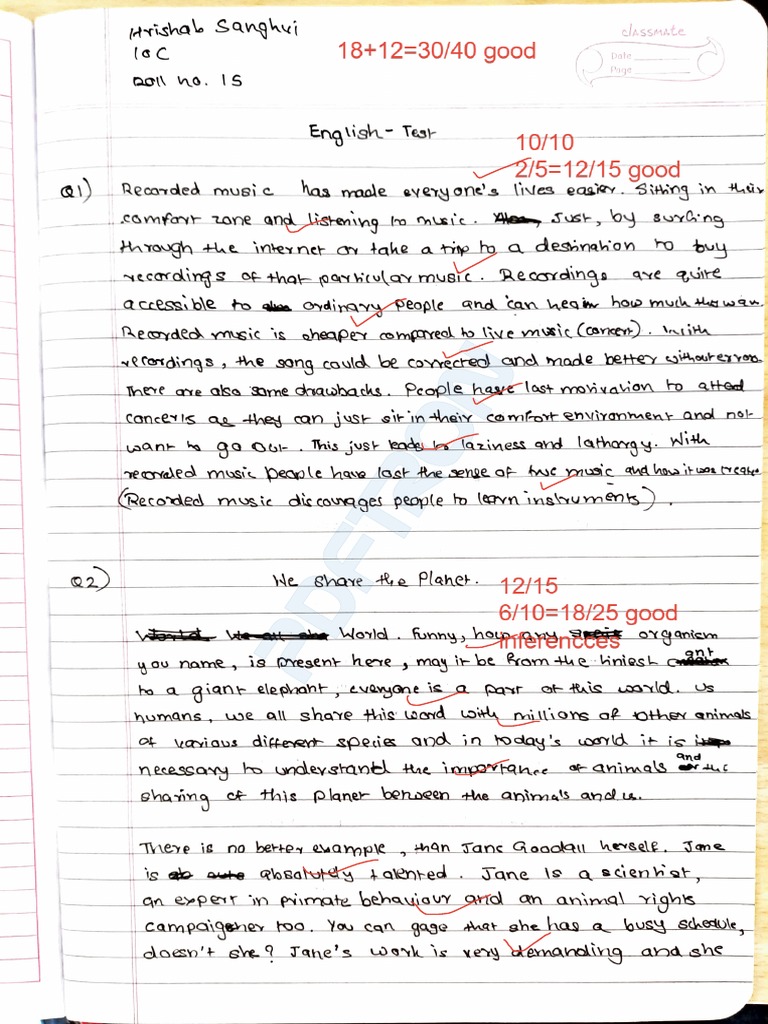 Hrishab Sanghvi
10 C
Roll no. 15
18+12=30/40 good
classmate
Date
Page
English - Test
10/10
2/5=12/15 good
Q1) Recorded music has made everyone's lives easier. Sitting in their
comfort zone and listening to music. Just, by surfing
through the internet or take a trip to a destination to buy
recordings of that particular music. Recordings are quite
accessible to ordinary people and can hear how much they wan.
Recorded music is cheaper compared to live music (concert). With
recordings, the song could be corrected and made better without error.
There are also some drawbacks. People have lost motivation to attend
concerts as they can just sit in their comfort environment and not
want to go out. This just leads to laziness and lathargy. With
recorded music people have lost the sense of true music and how it was
(Recorded music discourages people to learn instruments).
PDFTRON
Q2) We share the Planet.
12/15
6/10=18/25 good
inferencces
World. Funny, how any organism
you name, is present here, may it be from the tiniest ant
to a giant elephant, everyone is a part of this world. Us
humans, we all share this word with millions of other animals
of various different species and in today's world it is
necessary to understand the importance of animals and the
sharing of this planet between the animals and us.
There is no better example, than Jane Goodall herself. Jane
is absolutely talented. Jane is a scientist,
an expert in primate behaviour and an animal rights
campaigner too. You can gage that she has a busy schedule,
doesn't she? Jane's work is very demanding and she